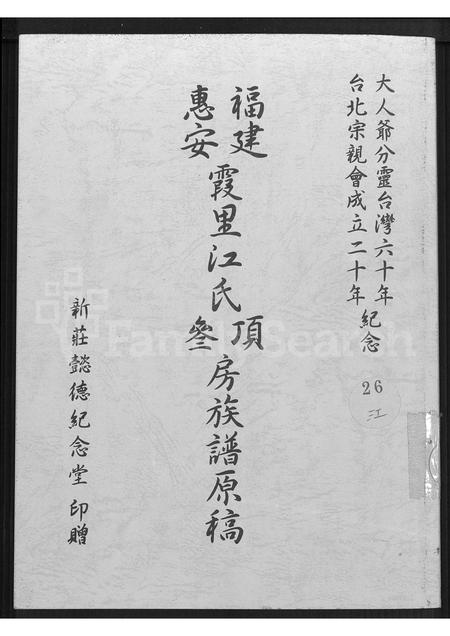 大人爺分靈台灣六十年
台北宗親會成立二十年紀念
26
江
福建
惠安
霞里江氏
頂
叄
房族譜原稿
新莊懿德紀念堂印贈
FamilySearch